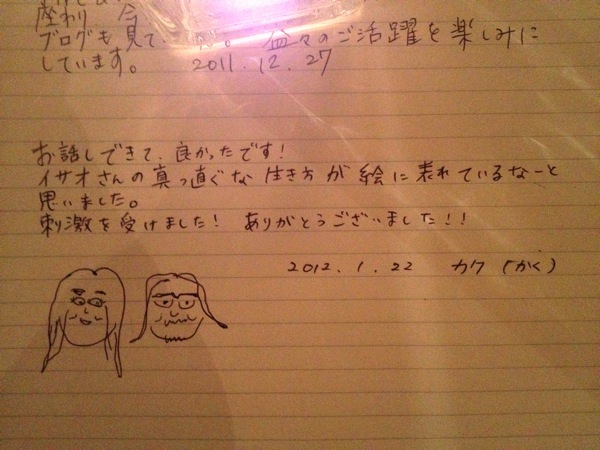 座わり 今
ブログも見て 益々のご活躍を楽しみに
しています。 2011.12.27
お話しできて、良かったです!
イサオさんの真っ直ぐな生き方が絵に表れているなーと
思いました。
刺激を受けました! ありがとうございました!!
2012.1.22 カク(かく)